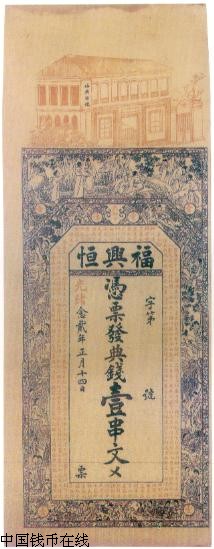 福興恒
字第 號
憑票發典錢壹串文
光緒念貳年正月十四日
票
中国钱币在线